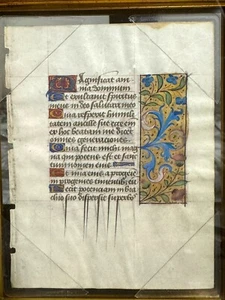 Magnificat ani
ma dominum
Et exultavit spiritus
meus in deo salutari meo
Quia respexit humili
tatem ancille sue ecce enim
ex hoc beatam me dicent
omnes generaciones
Quia fecit michi magna
qui potens est et sanc
tum nomen eius
Et mia eius a progenie
in progenies timentibus eum
Fecit potenciam in bra
chio suo dispersit superbos